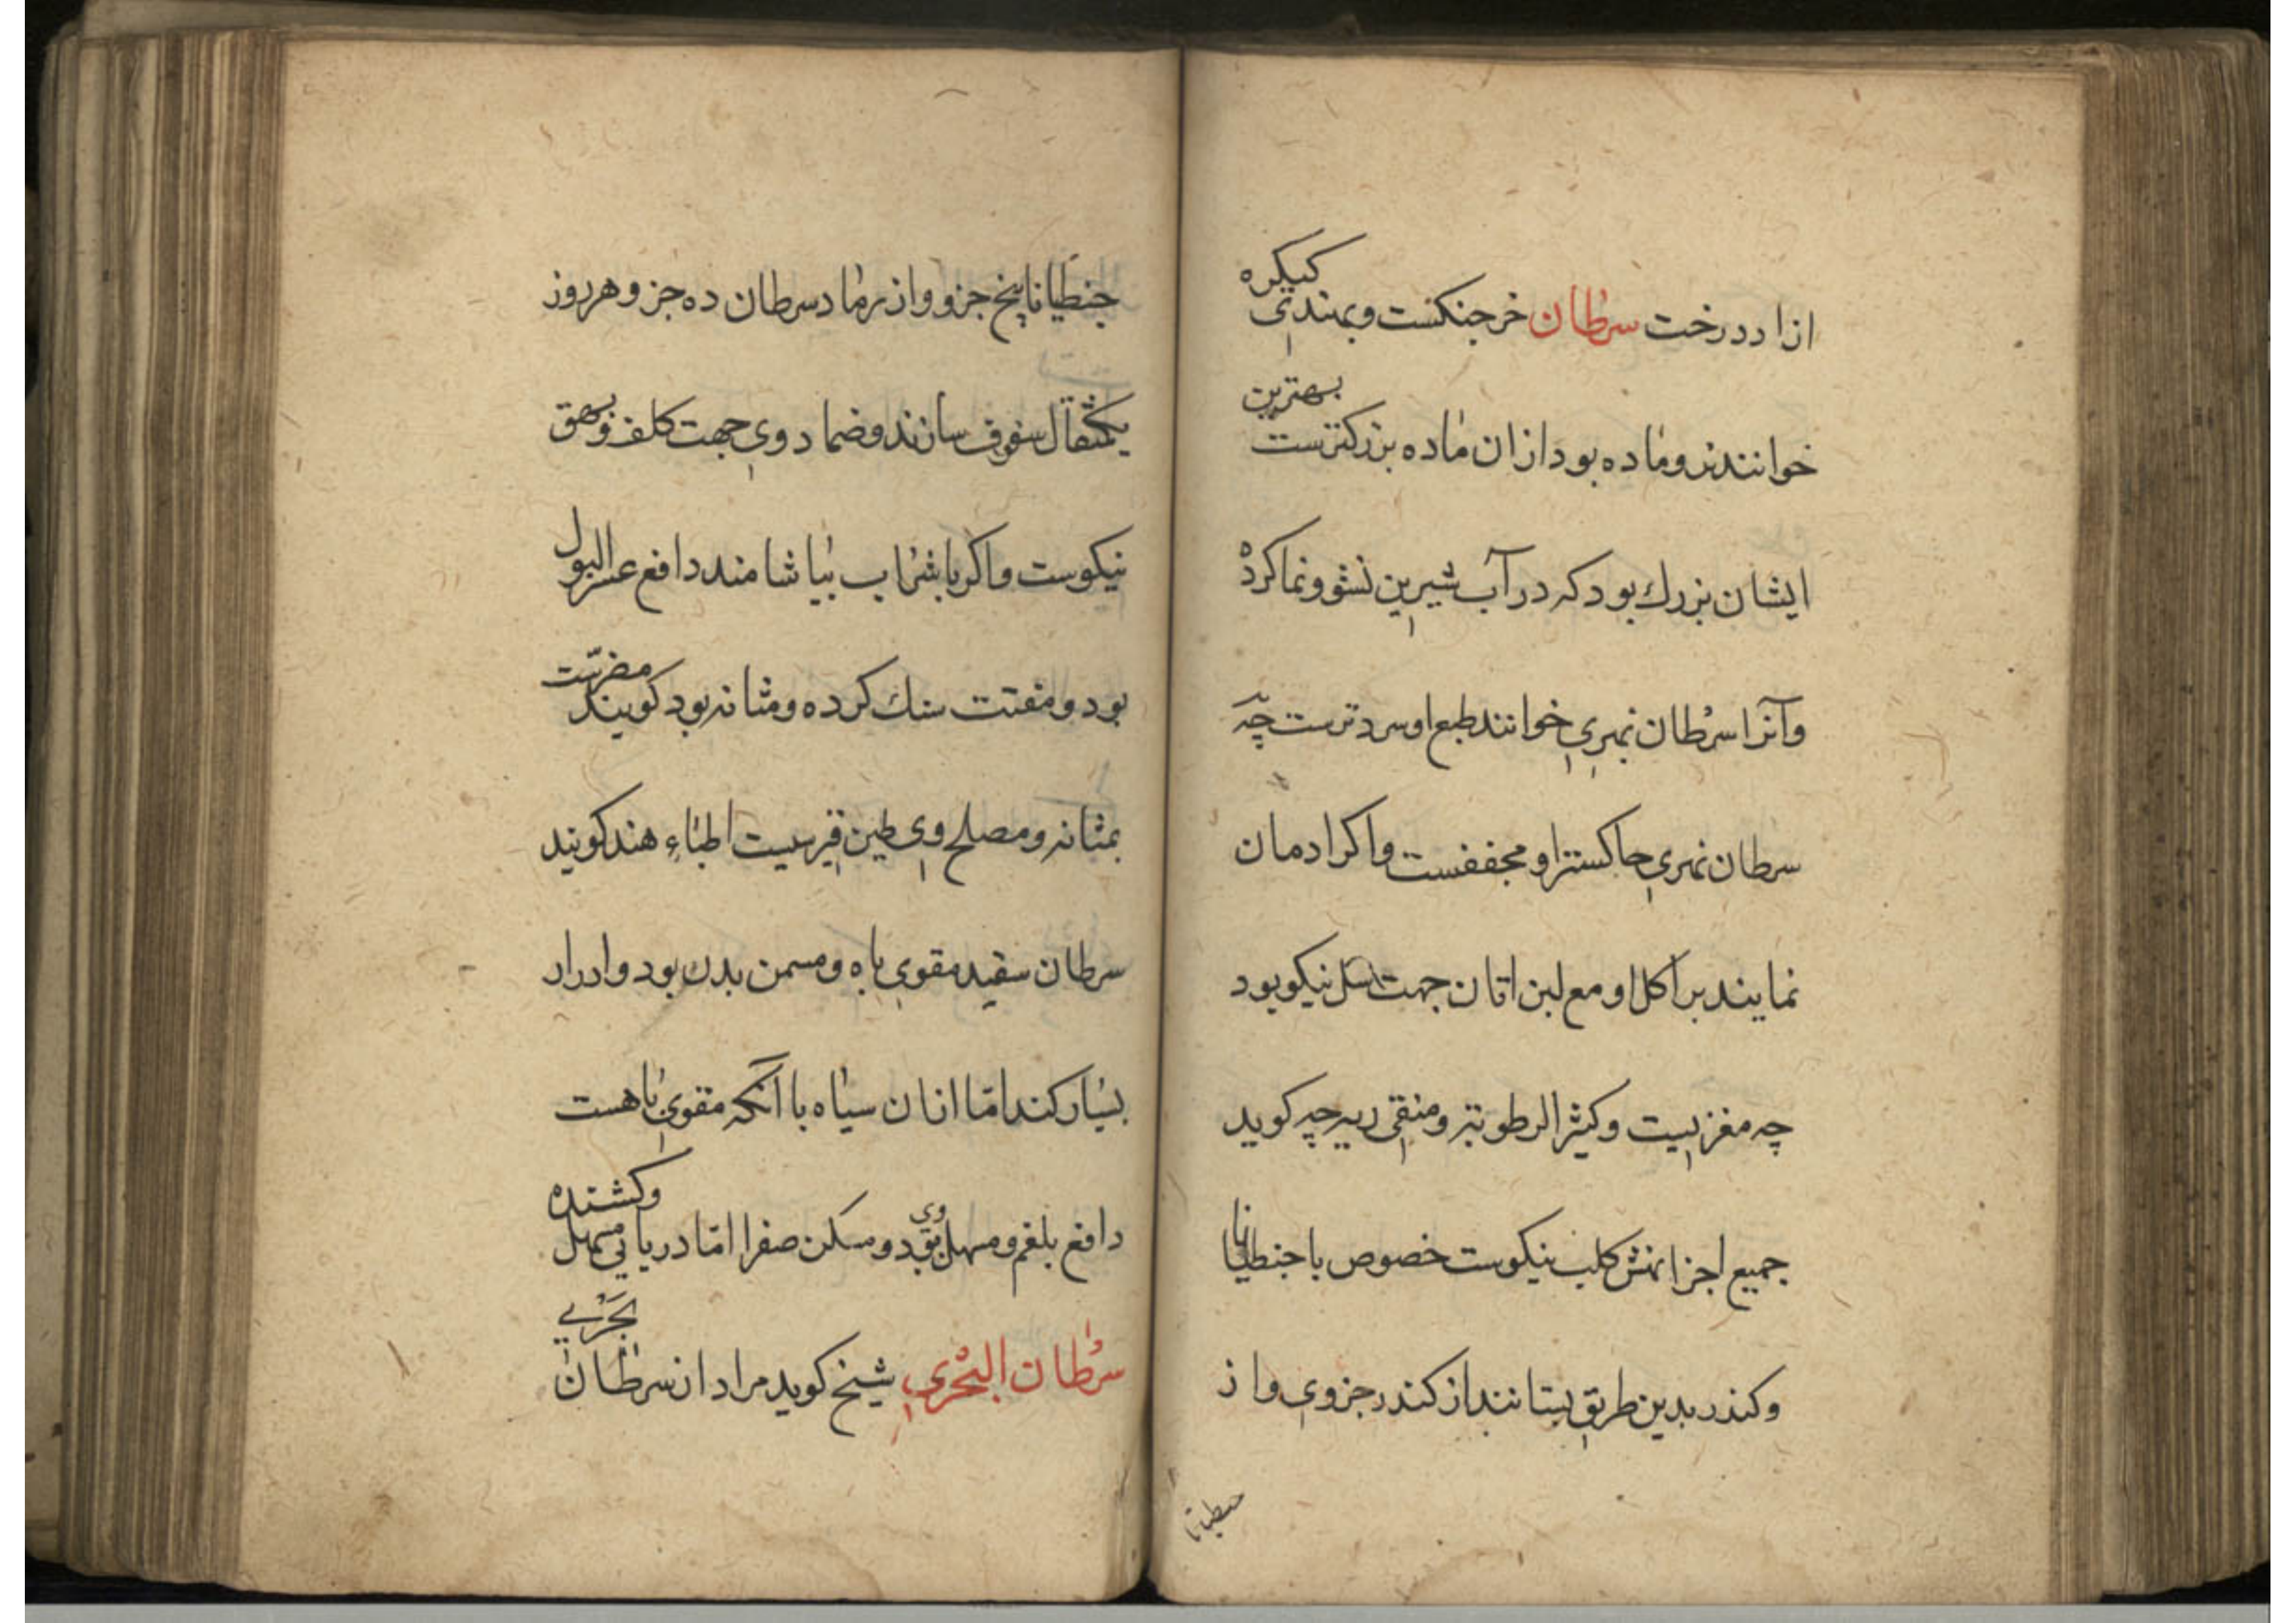 ازاد درخت سرطان خرجنکست و بهندی کیکره
خوانند نر و ماده بود از ان ماده بزرکترست بهترین
ایشان بزرك بود که در آب شیرین نشو و نما کرده
و آنرا سرطان نهری خوانند طبع او سردترست چه
سرطان نهری خاکستر او مجففست و اکر ادمان
نمایند بر اکل او مع لبن اتان جهت سل نیکو بود
چه مغزیست و کثیر الرطوبه و منقی ریه چه کوید
جمیع اجزا نهش کلب نیکوست خصوص با جنطیانا
و کندر بدین طریق بستانند از کندر جزوی و از
جنطیانا
جنطیانا پنج جزو و از رماد سرطان ده جزو هر روز
یکمثقال سفوف سازند و ضماد وی جهت کلف و بهق
نیکوست و اکر با شراب بیاشامند دافع عسر البول
بود و مفتت سنك کرده و مثانه بود کویند مضرست
بمثانه و مصلح وی طین قبرسیست اطباء هند کویند
سرطان سفید مقوی باه و مسمن بدن بود و ادرار
بسیار کند امّا ازان سیاه با آنکه مقوی باهست
دافع بلغم و مسهل وی بود و مسکن صفرا امّا دریایی مسهل و کشنده
سرطان البحری شیخ کوید مراد از سرطان بحری